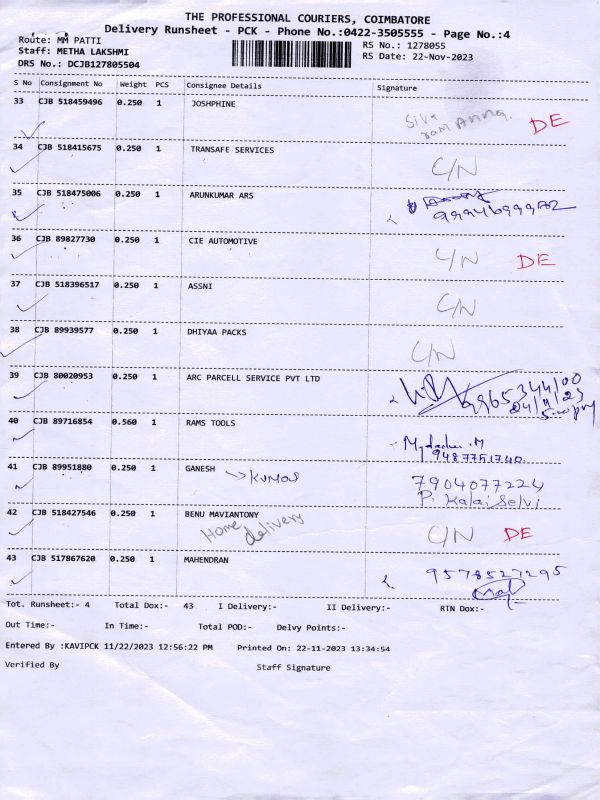 THE PROFESSIONAL COURIERS, COIMBATORE
Delivery Runsheet - PCK - Phone No.:0422-3505555 - Page No.:4
Route: MM PATTI
RS No.: 1278055
Staff: METHA LAKSHMI
RS Date: 22-Nov-2023
DRS No.: DCJB127805504
S No Consignment No Weight PCS Consignee Details Signature
33 CJB 518459496 0.250 1 JOSHPHINE Siva ram Anna. DE
34 CJB 518415675 0.250 1 TRANSAFE SERVICES C/N
35 CJB 518475006 0.250 1 ARUNKUMAR ARS
36 CJB 89827730 0.250 1 CIE AUTOMOTIVE C/N DE
37 CJB 518396517 0.250 1 ASSNI C/N
38 CJB 89939577 0.250 1 DHIYAA PACKS C/N
39 CJB 80020953 0.250 1 ARC PARCELL SERVICE PVT LTD
40 CJB 89716854 0.560 1 RAMS TOOLS
9487751740
41 CJB 89951880 0.250 1 GANESH Kumar 7904077224
P. Kalai Selvi
42 CJB 518427546 0.250 1 BENU MAVIANTONY Home delivery C/N DE
43 CJB 517867620 0.250 1 MAHENDRAN 9578527295
Tot. Runsheet:- 4 Total Dox:- 43 I Delivery:- II Delivery:- RTN Dox:-
Out Time:- In Time:- Total POD:- Delvy Points:-
Entered By :KAVIPCK 11/22/2023 12:56:22 PM Printed On: 22-11-2023 13:34:54
Verified By Staff Signature